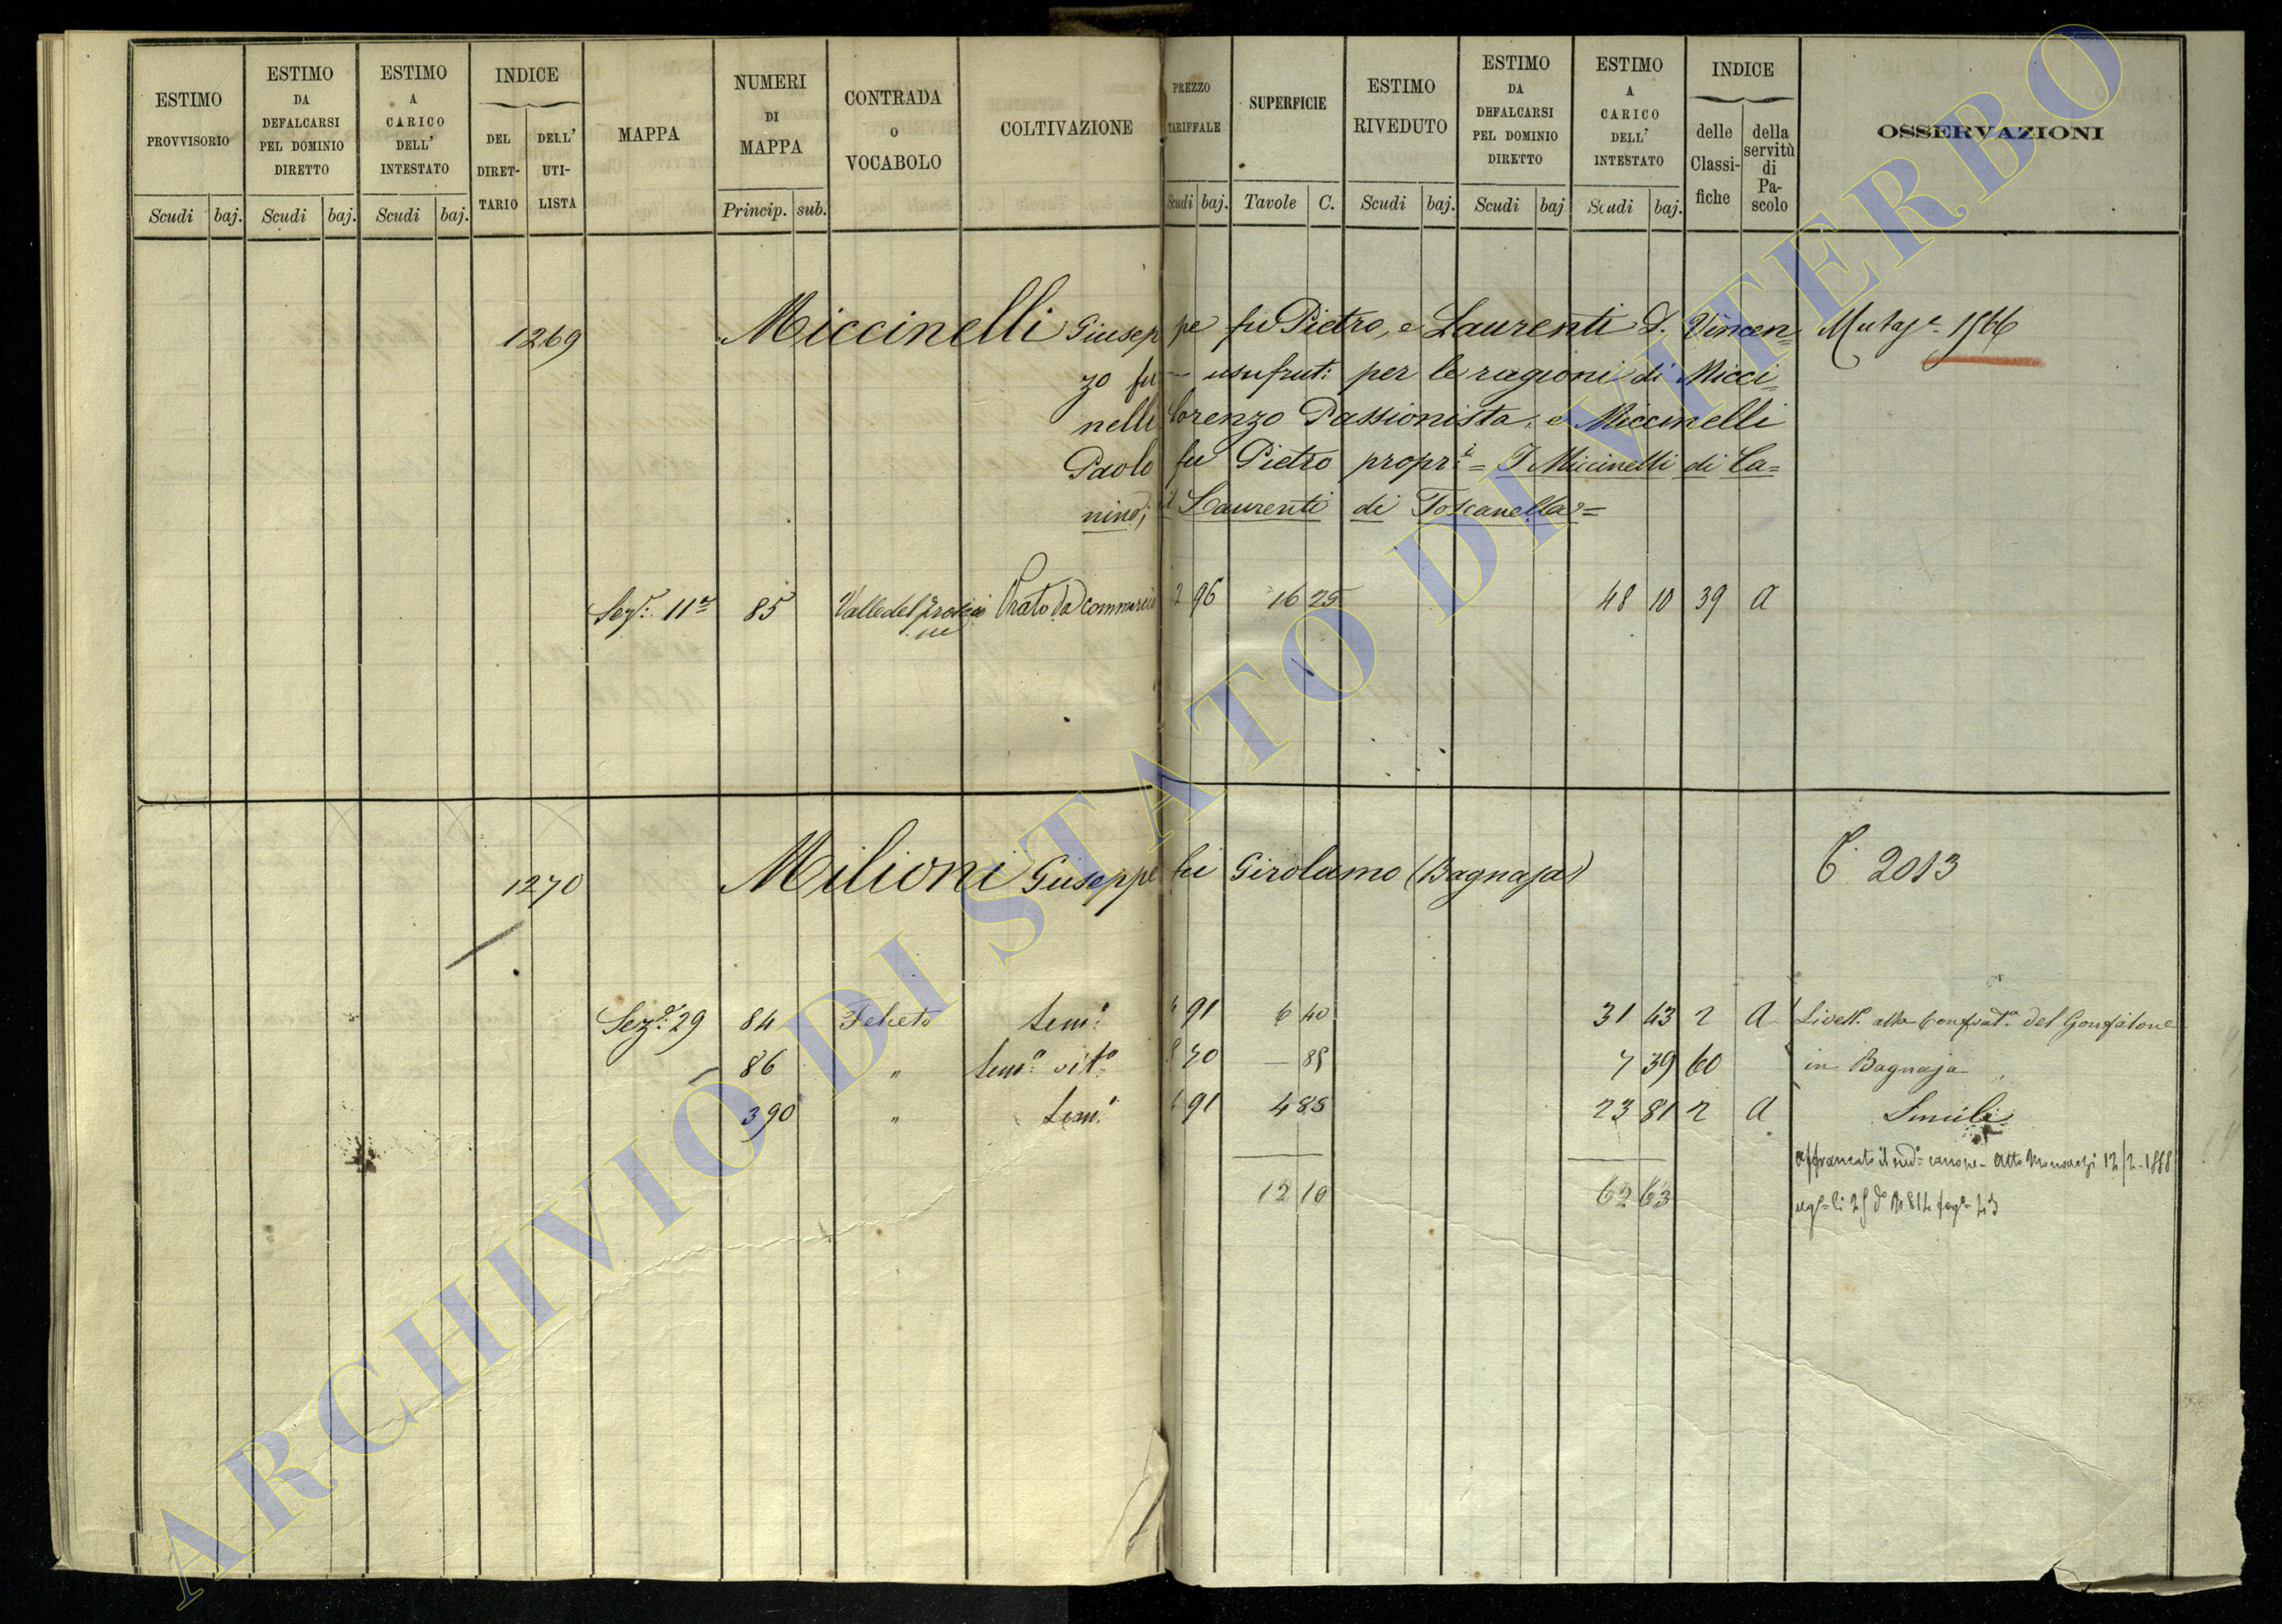 ESTIMO PROVVISORIO
ESTIMO DA DEFALCARSI PEL DOMINIO DIRETTO
ESTIMO A CARICO DELL' INTESTATO
INDICE
DEL DIRET- TARIO
DELL' UTI- LISTA
MAPPA
NUMERI DI MAPPA
CONTRADA O VOCABOLO
COLTIVAZIONE
PREZZO TARIFFALE
SUPERFICIE
ESTIMO RIVEDUTO
ESTIMO DA DEFALCARSI PEL DOMINIO DIRETTO
ESTIMO A CARICO DELL' INTESTATO
INDICE
delle Classi- fiche
della servitù di Pa- scolo
OSSERVAZIONI
Scudi baj. Scudi baj. Scudi baj. Princip. sub. Scudi baj. Tavole C. Scudi baj. Scudi baj Scudi baj.
1269 Miccinelli Giusep pe fu Pietro, e Laurenti D. Vincen=
zo fu — usufrut: per le ragioni di Micci=
nelli Lorenzo Passionista, e Miccinelli
Paolo fu Pietro propr. = I Miccinelli di Ca=
nino, il Laurenti di Toscanella =
Sez. 11 85 Valle del Prato da commercio 2 96 16 25 48 10 39 A
1270 Milioni Giuseppe fu Girolamo (Bagnaja) 2013
Sez. 29 84 Felceto Sem. 6 91 6 40 31 43 2 A Livell. alla Confrat. del Gonfalone
86 " Sem. vit. 8 70 — 85 7 39 60 in Bagnaja
390 " Sem. 6 91 4 85 23 81 2 A Simile
affrancato il sud. canone - Atto 12/2-1888
12 10 62 63
ARCHIVIO DI STATO DI VITERBO